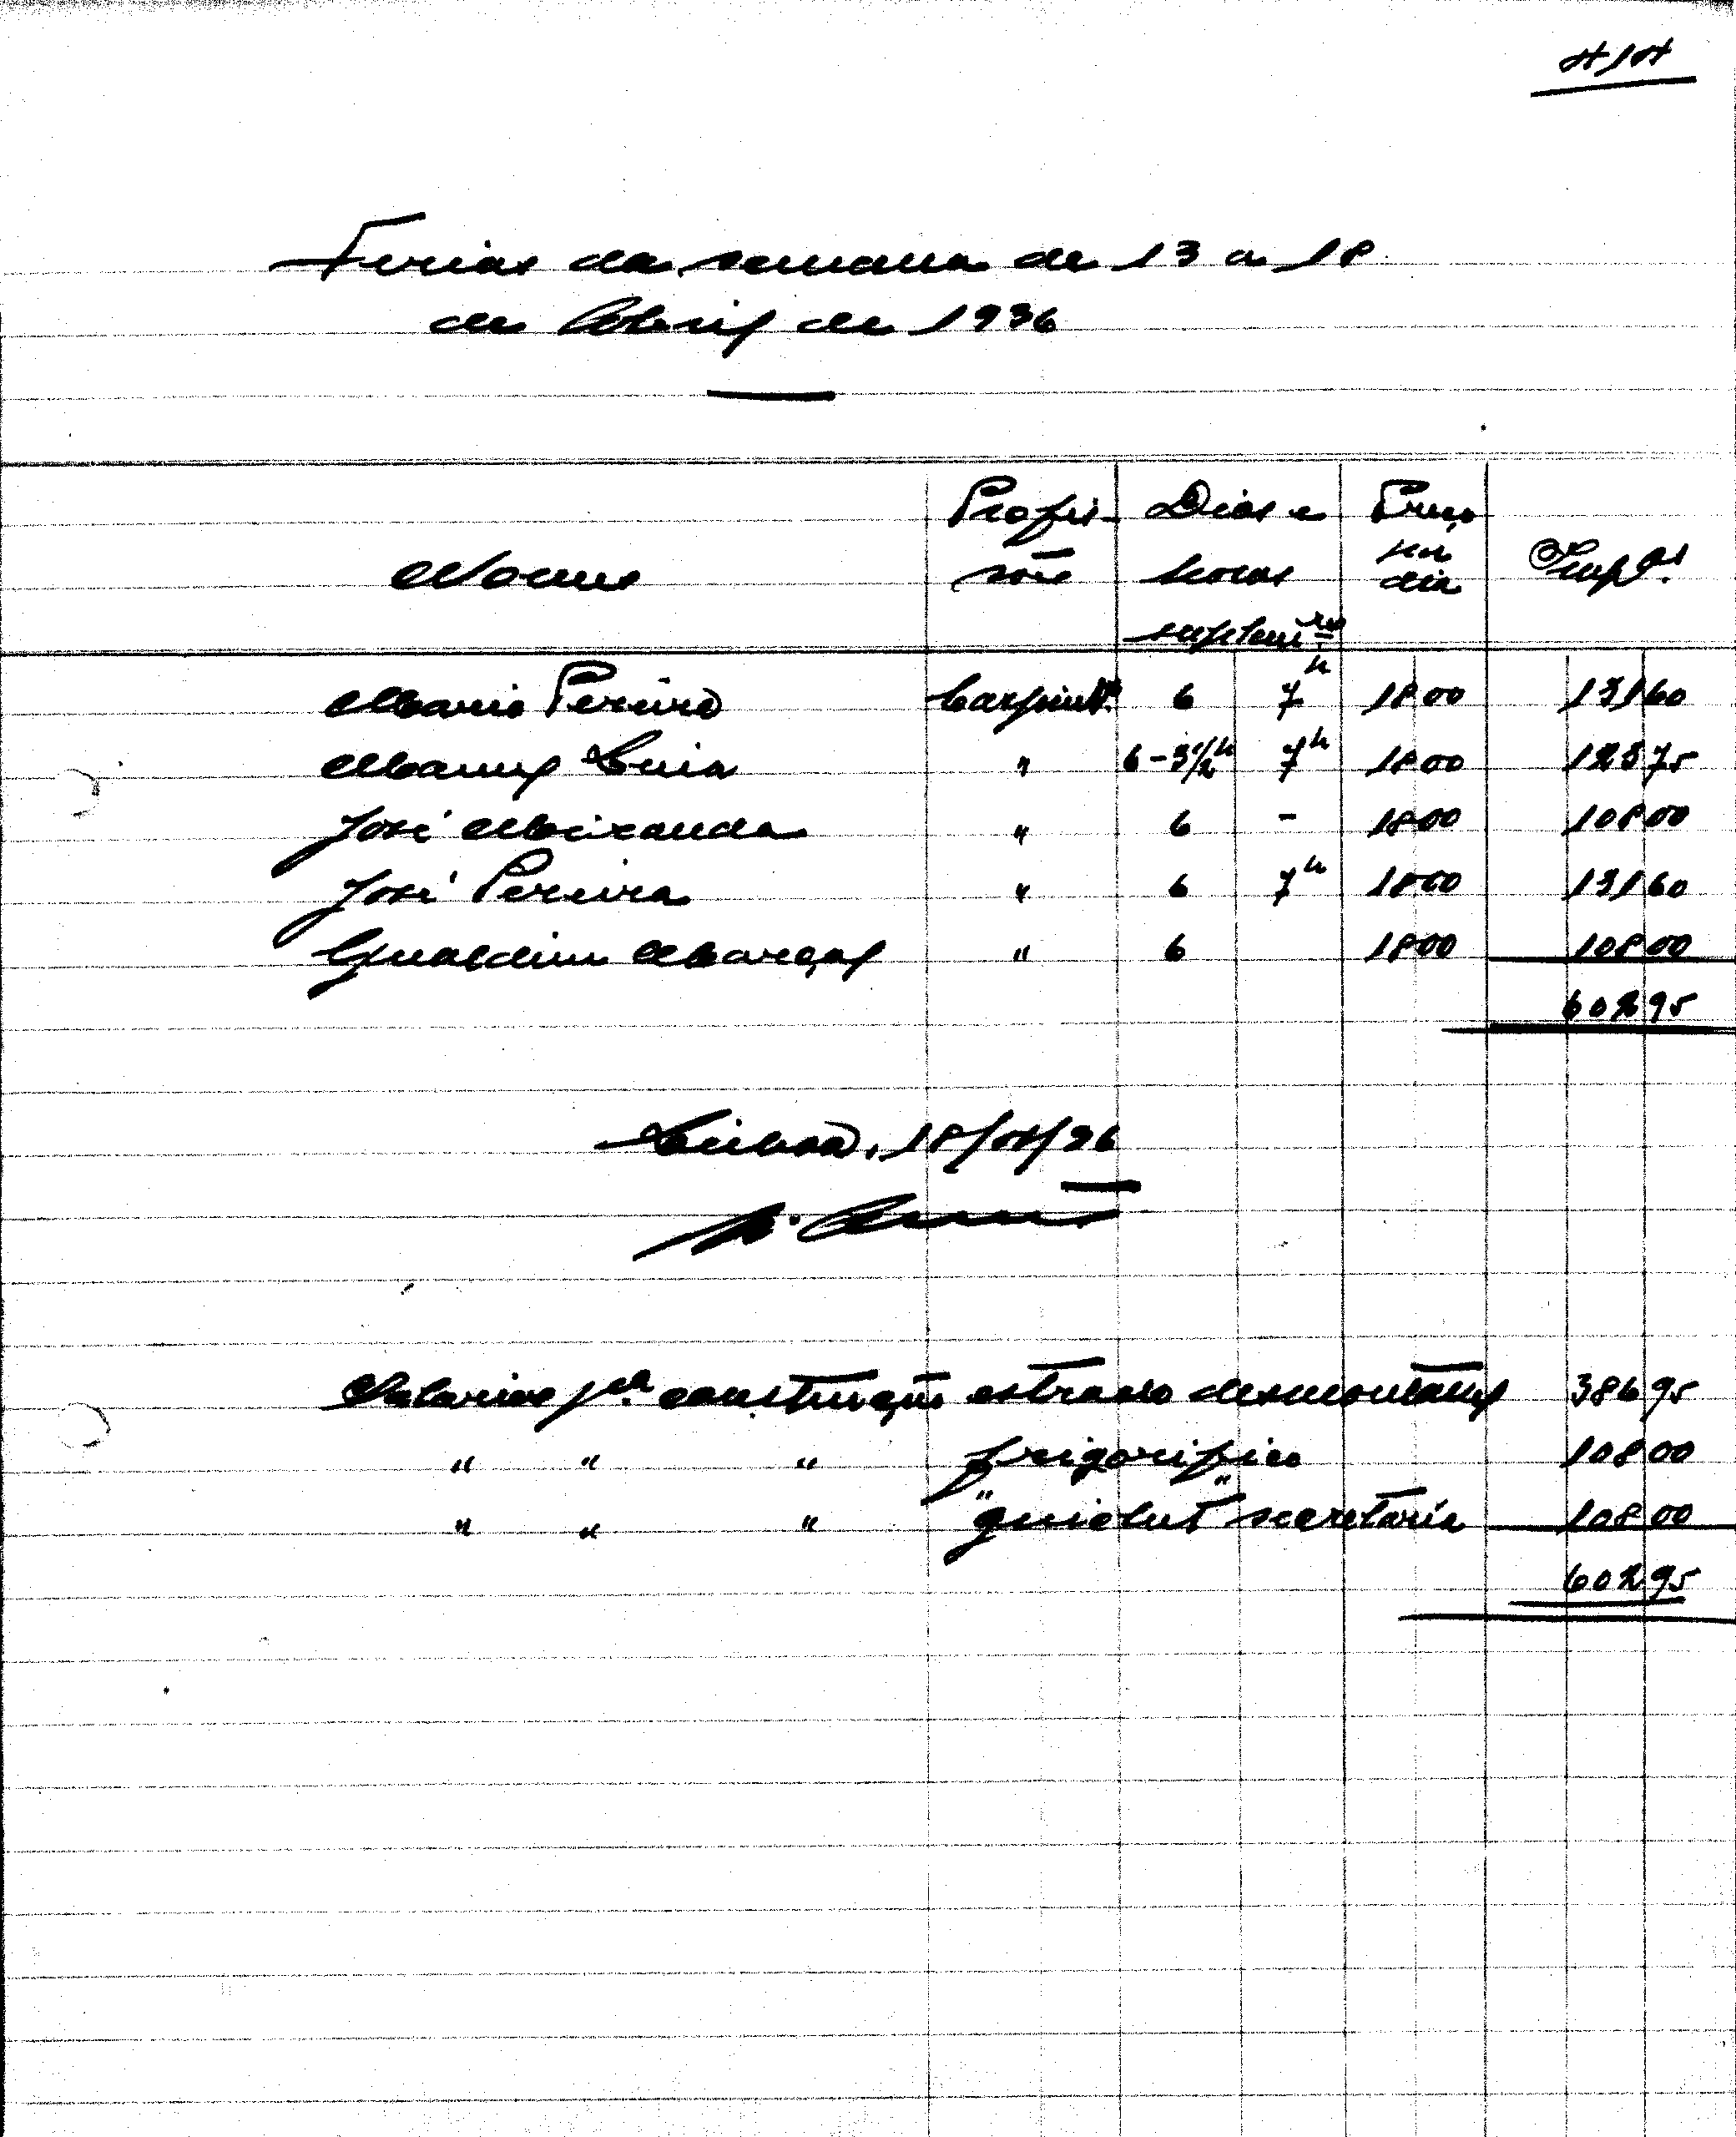 414
Ferias da semana de 13 a 18
de Abril de 1936
Profis- Dias e Preço
Nomes sões horas por dia Imp.as
suplem.res
Mario Pereira Carpint.º 6 7h 18 00 131 60
Manuel Luis " 6-3½h 7h 18 00 123 75
José Miranda " 6 - 18 00 108 00
José Pereira " 6 7h 18 00 131 60
Gualdim Marçal " 6 18 00 108 00
602 95
Lisboa, 18/04/36
Salarios p.a construção estrado desmontavel 386 95
" " " frigorifico 108 00
" " " " guichet " secretaria 108 00
602 95